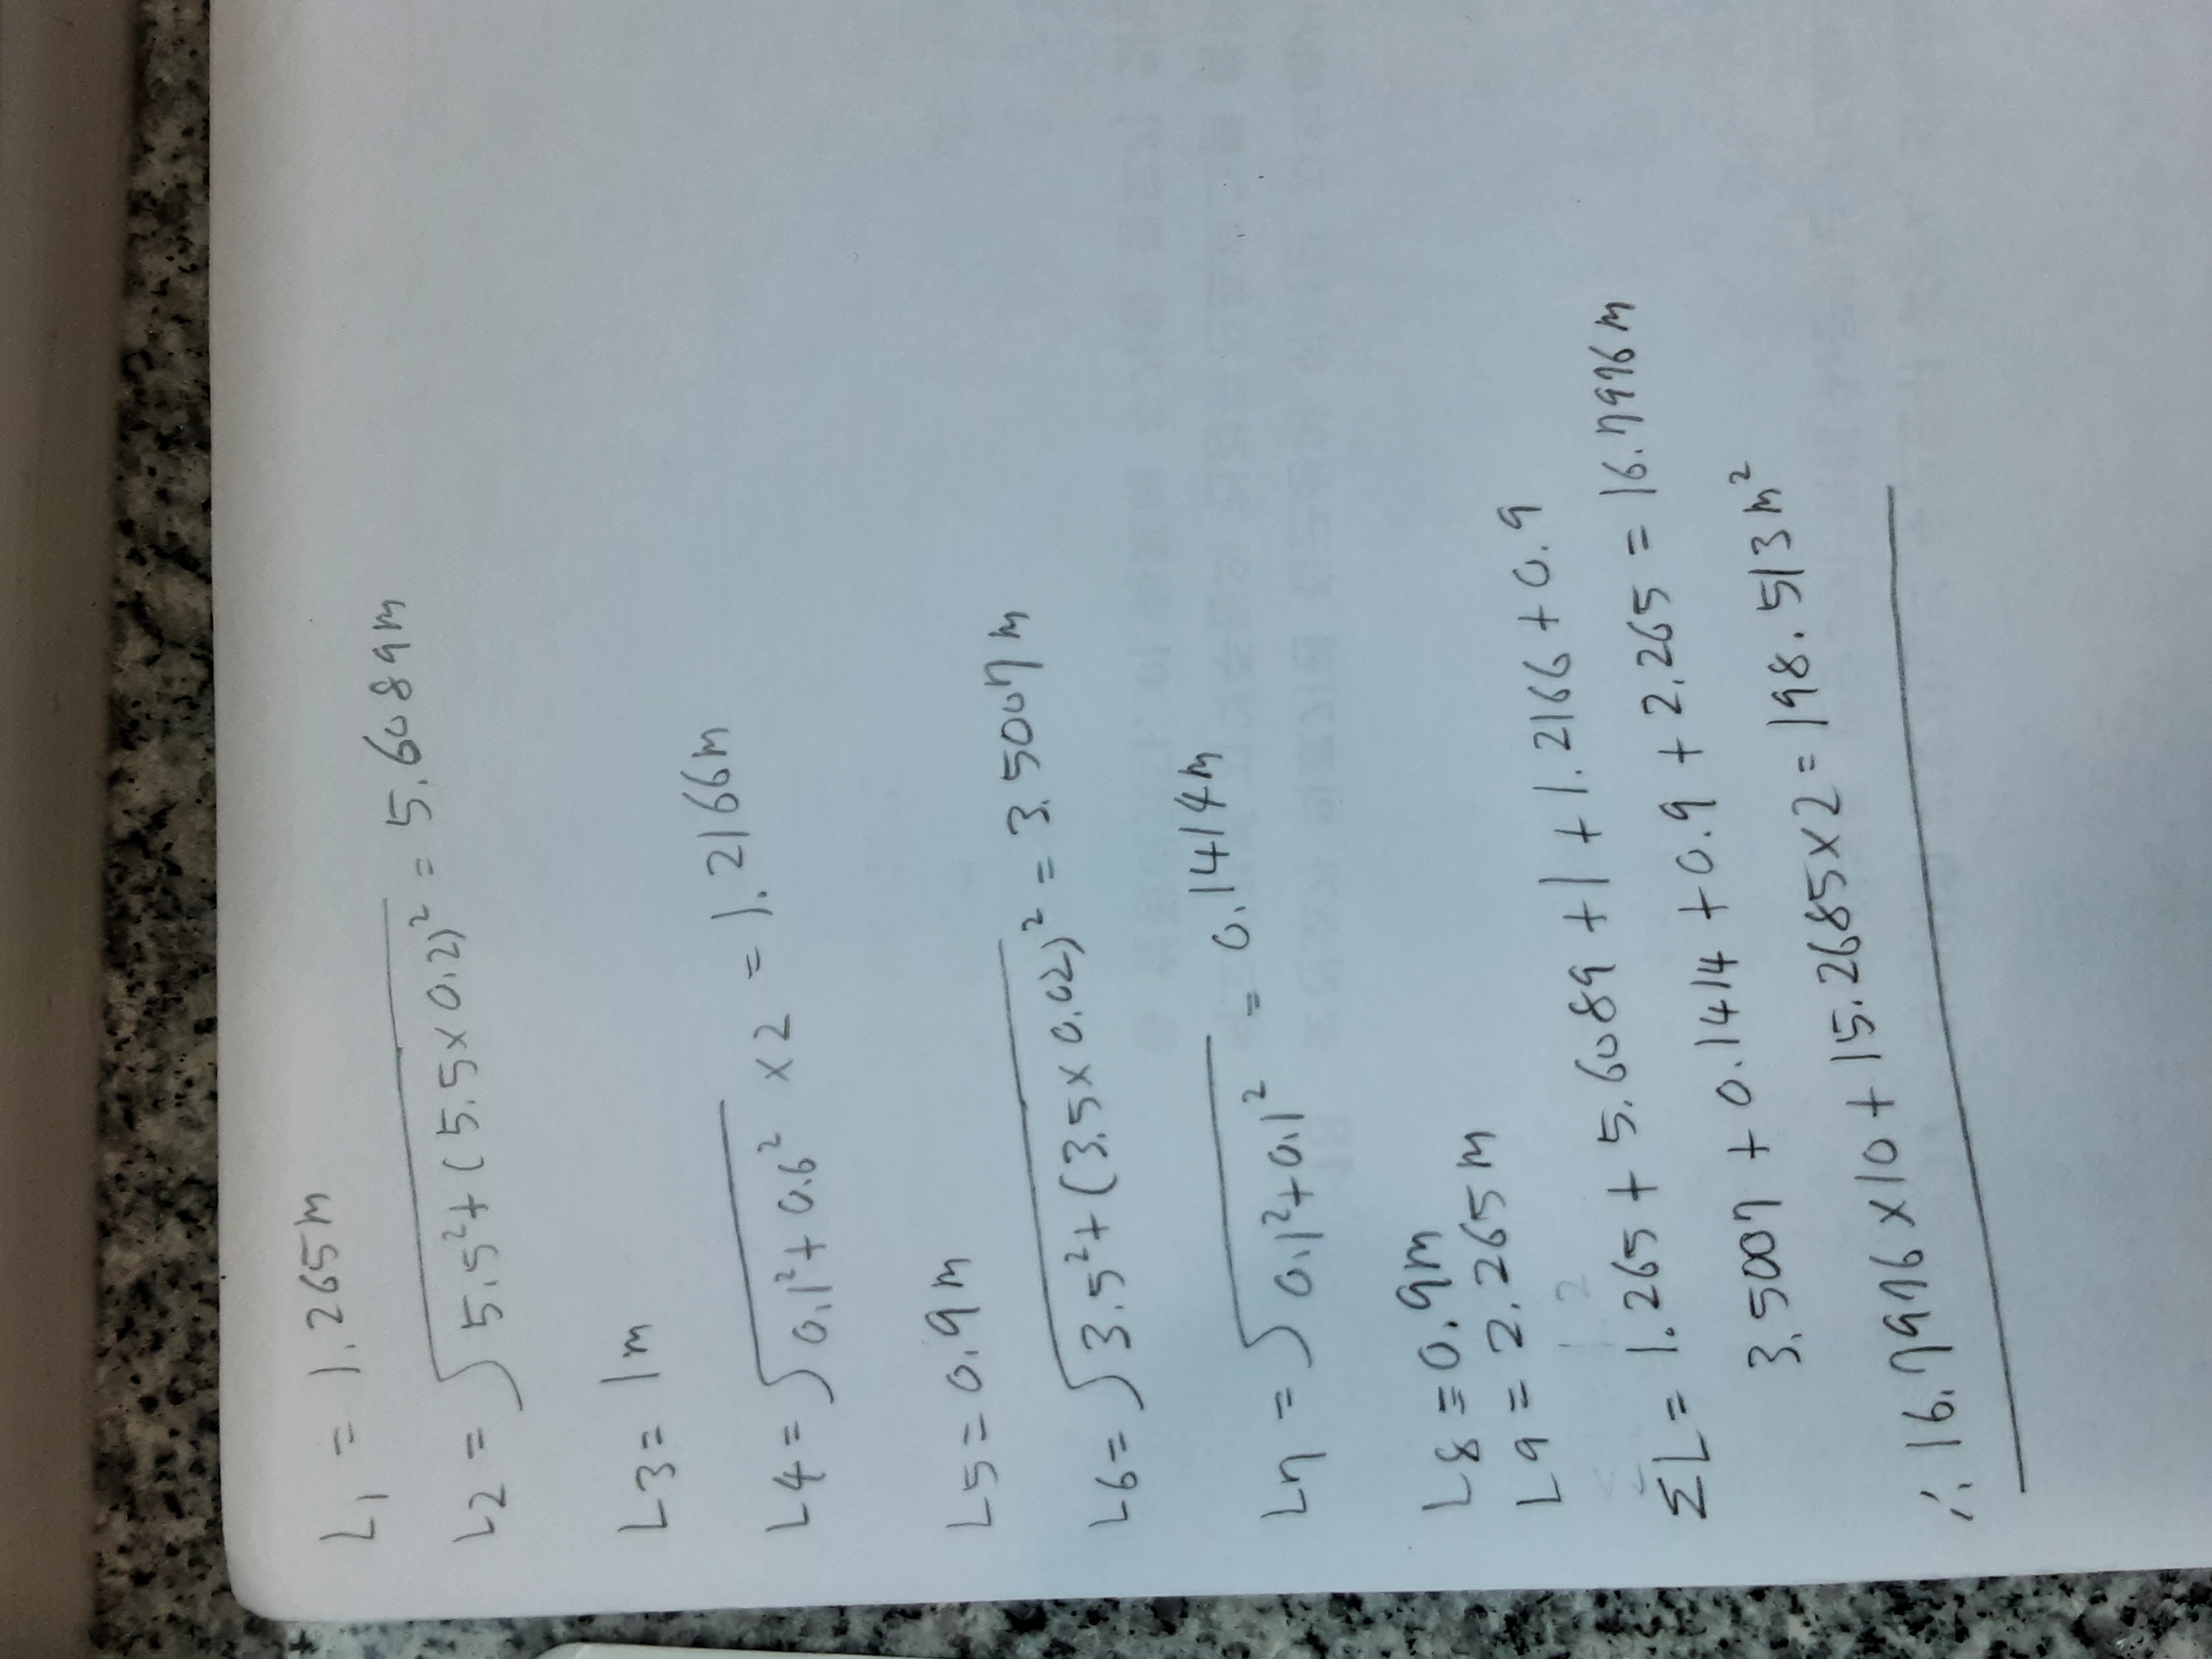 L1 = 1.265m
L2 = √5.5²+(5.5×0.2)² = 5.6089m
L3 = 1m
L4 = √0.1²+0.6² ×2 = 1.2166m
L5 = 0.9m
L6 = √3.5²+(3.5×0.02)² = 3.5007m
L7 = √0.1²+0.1² = 0.1414m
L8 = 0.9m
L9 = 2.265m
ΣL = 1.265 + 5.6089 + 1 + 1.2166 + 0.9
3.5007 + 0.1414 + 0.9 + 2.265 = 16.7976m
∴ 16.7976×10 + 15.2685×2 = 198.513m²